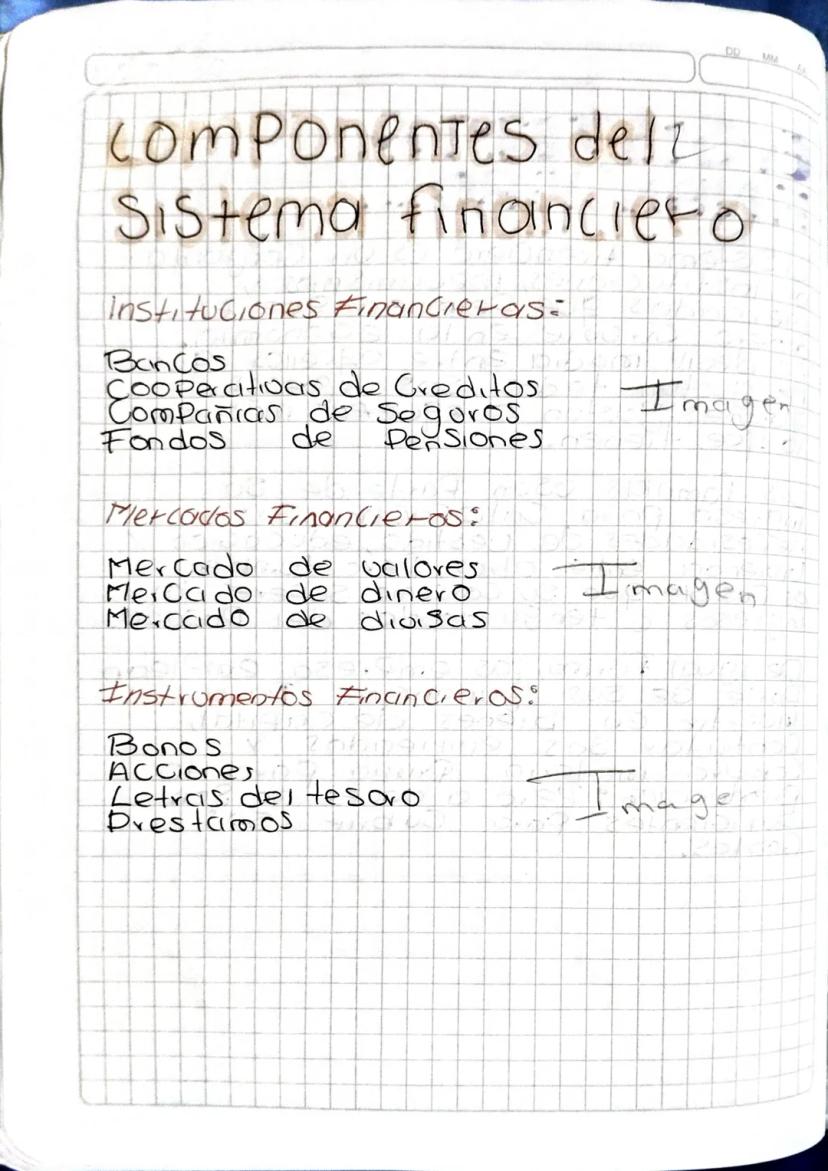 DD MM
componentes dell
sistema financiero
Instituciones Financieras:
Bancos
Cooperativas de Creditos
Compañias de Seguros
Fondos de Pensiones
Imagen
Mercados Financieros:
Mercado de valores
Mercado de dinero
Mercado de divisas
Imagen
Instrumentos Financieros:
Bonos
Acciones
Letras del tesoro
Prestamos
Imagen